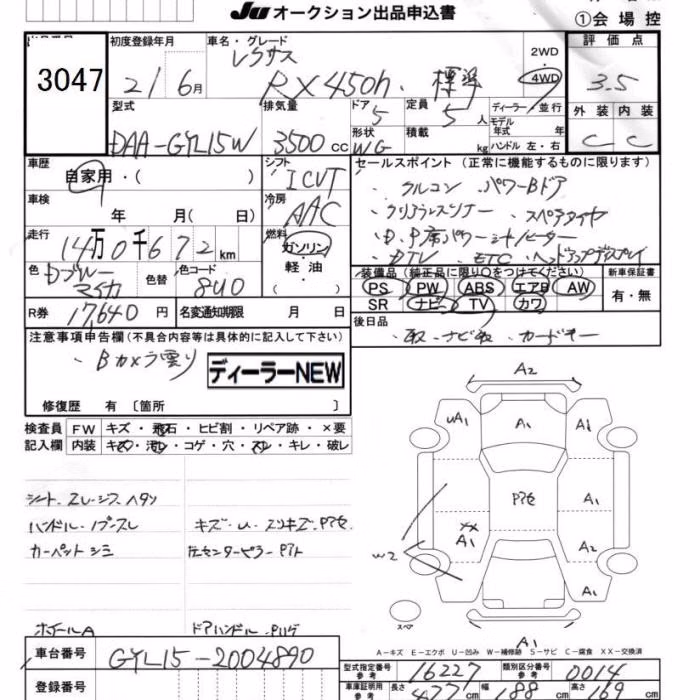 JU オークション出品申込書
①会場控
3047
初度登録年月
21 6月
車名・グレード
レクサス
RX450h. 標準
2WD
4WD
評価点
3.5
型式
DAA-GYL15W
排気量
3500 cc
ドア 5
定員 5 人
ディーラー・並行
モデル年式 年
形状 WG
積載 kg
ハンドル 左・右
外装 内装
C C
車歴
自家用・( )
シフト
ICVT
セールスポイント (正常に機能するものに限ります)
・クルコン ・パワーBドア
・クリアランスソナー ・スペアタイヤ
・D.P席パワーシート/ヒーター
・DTV ・ETC ・ヘッドアップディスプレイ
車検
年 月( 日)
冷房
AAC
走行
14万0千672km
燃料
ガソリン
軽・油
( )
色 Dブルー
マイカ
色替
色コード
8U0
装備品 (純正品に限り○をつけてください)
PS PW ABS エアB AW
SR ナビ TV カワ
新車保証書
有・無
R券 17,640 円
名変通知期限 月 日
後日品
・取.ナビ取.カードキー
注意事項申告欄 (不具合内容等は具体的に記入して下さい)
・Bカメラ曇り
ディーラーNEW
修復歴 有 〔箇所 〕
検査員記入欄
FW キズ・飛石・ヒビ割・リペア跡・×要
内装 キズ・汚レ・コゲ・穴・スレ・キレ・破レ
シート.スレ.シワ.ヘタリ
ハンドル・ノブスレ
キズ・U.スリキズ.Pアセ
カーペットシミ
左センターピラーPアト
ホイールA
ドアハンドル.Pハゲ
A2
UA1 A1 A1
Pアセ A1
XX
A1
W2
A2
A1
スペア
A1
A－キズ E－エクボ U－凹み W－補修跡 S－サビ C－腐食 XX－交換済
車台番号
GYL15-2004890
登録番号
型式指定番号 参考
16227
類別区分番号 参考
0014
車庫証明用 参考
長さ 477cm
幅 188cm
高さ 169cm